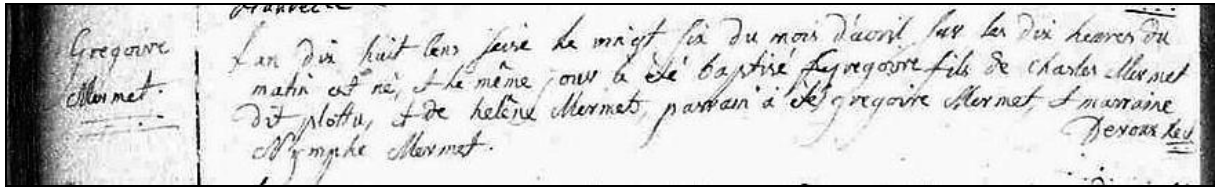 Gregoire
Mermet.
L'an dix huit cens seise le vingt six du mois d'avril sur les dix heures du
matin est né, et le même jour a été baptisé Gregoire fils de Charles Mermet
dit plottu, et de helêne Mermet, parrain à été gregoire Mermet, et marraine
Nymphe Mermet.